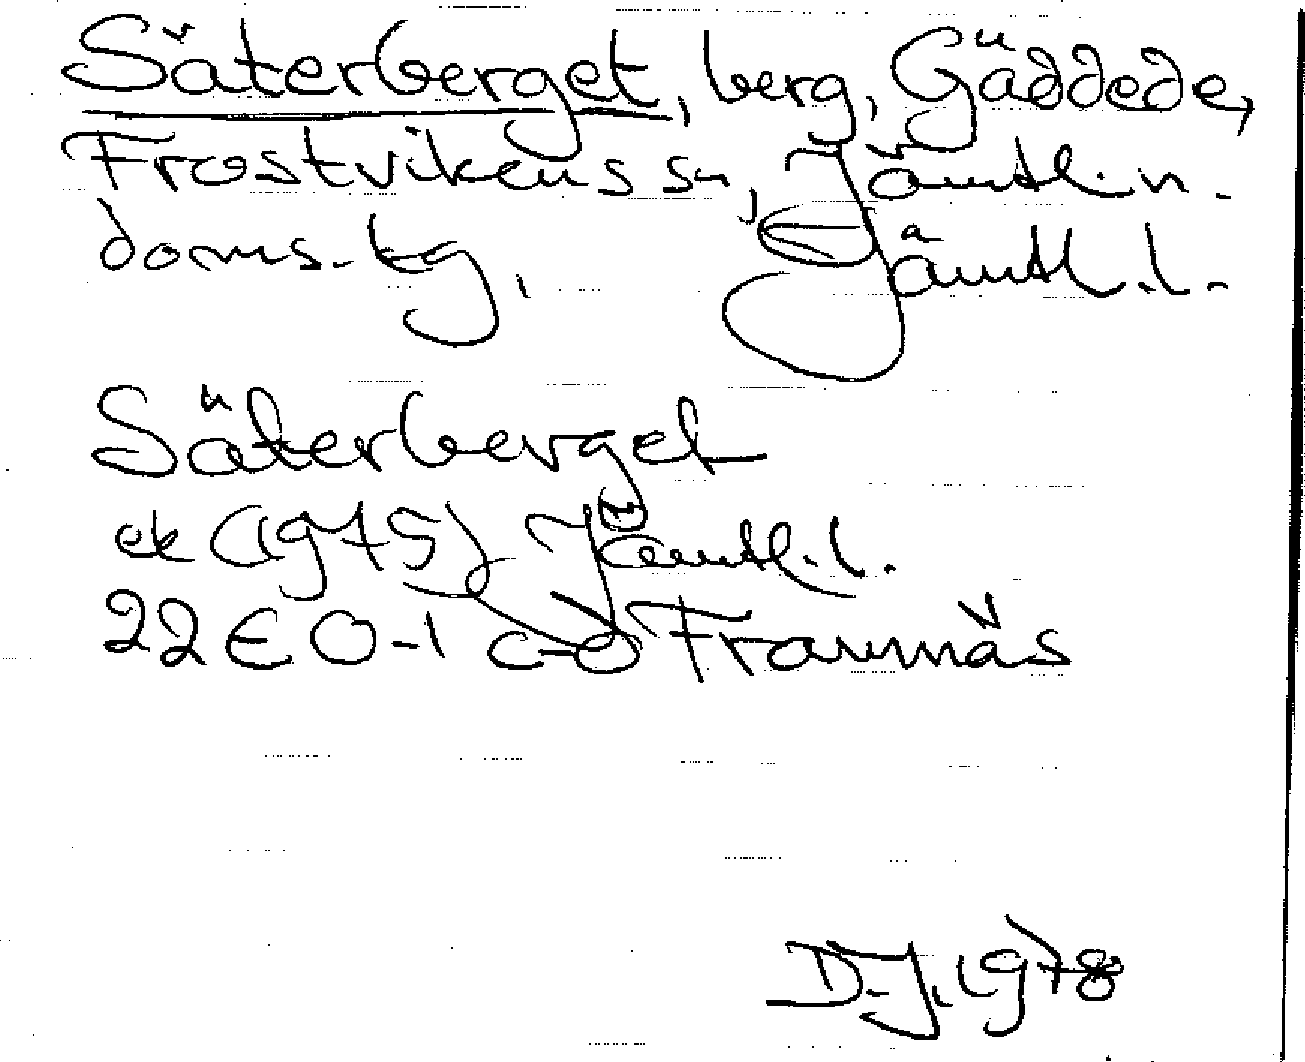 Säterberget, berg, Gäddede,
Frostvikens sn, Jämtl. n.
doms. tg, Jämtl. l.
Säterberget
ek (1975) Jämtl. l.
22E 0-1 c-d Frannäs
D. J. 1978